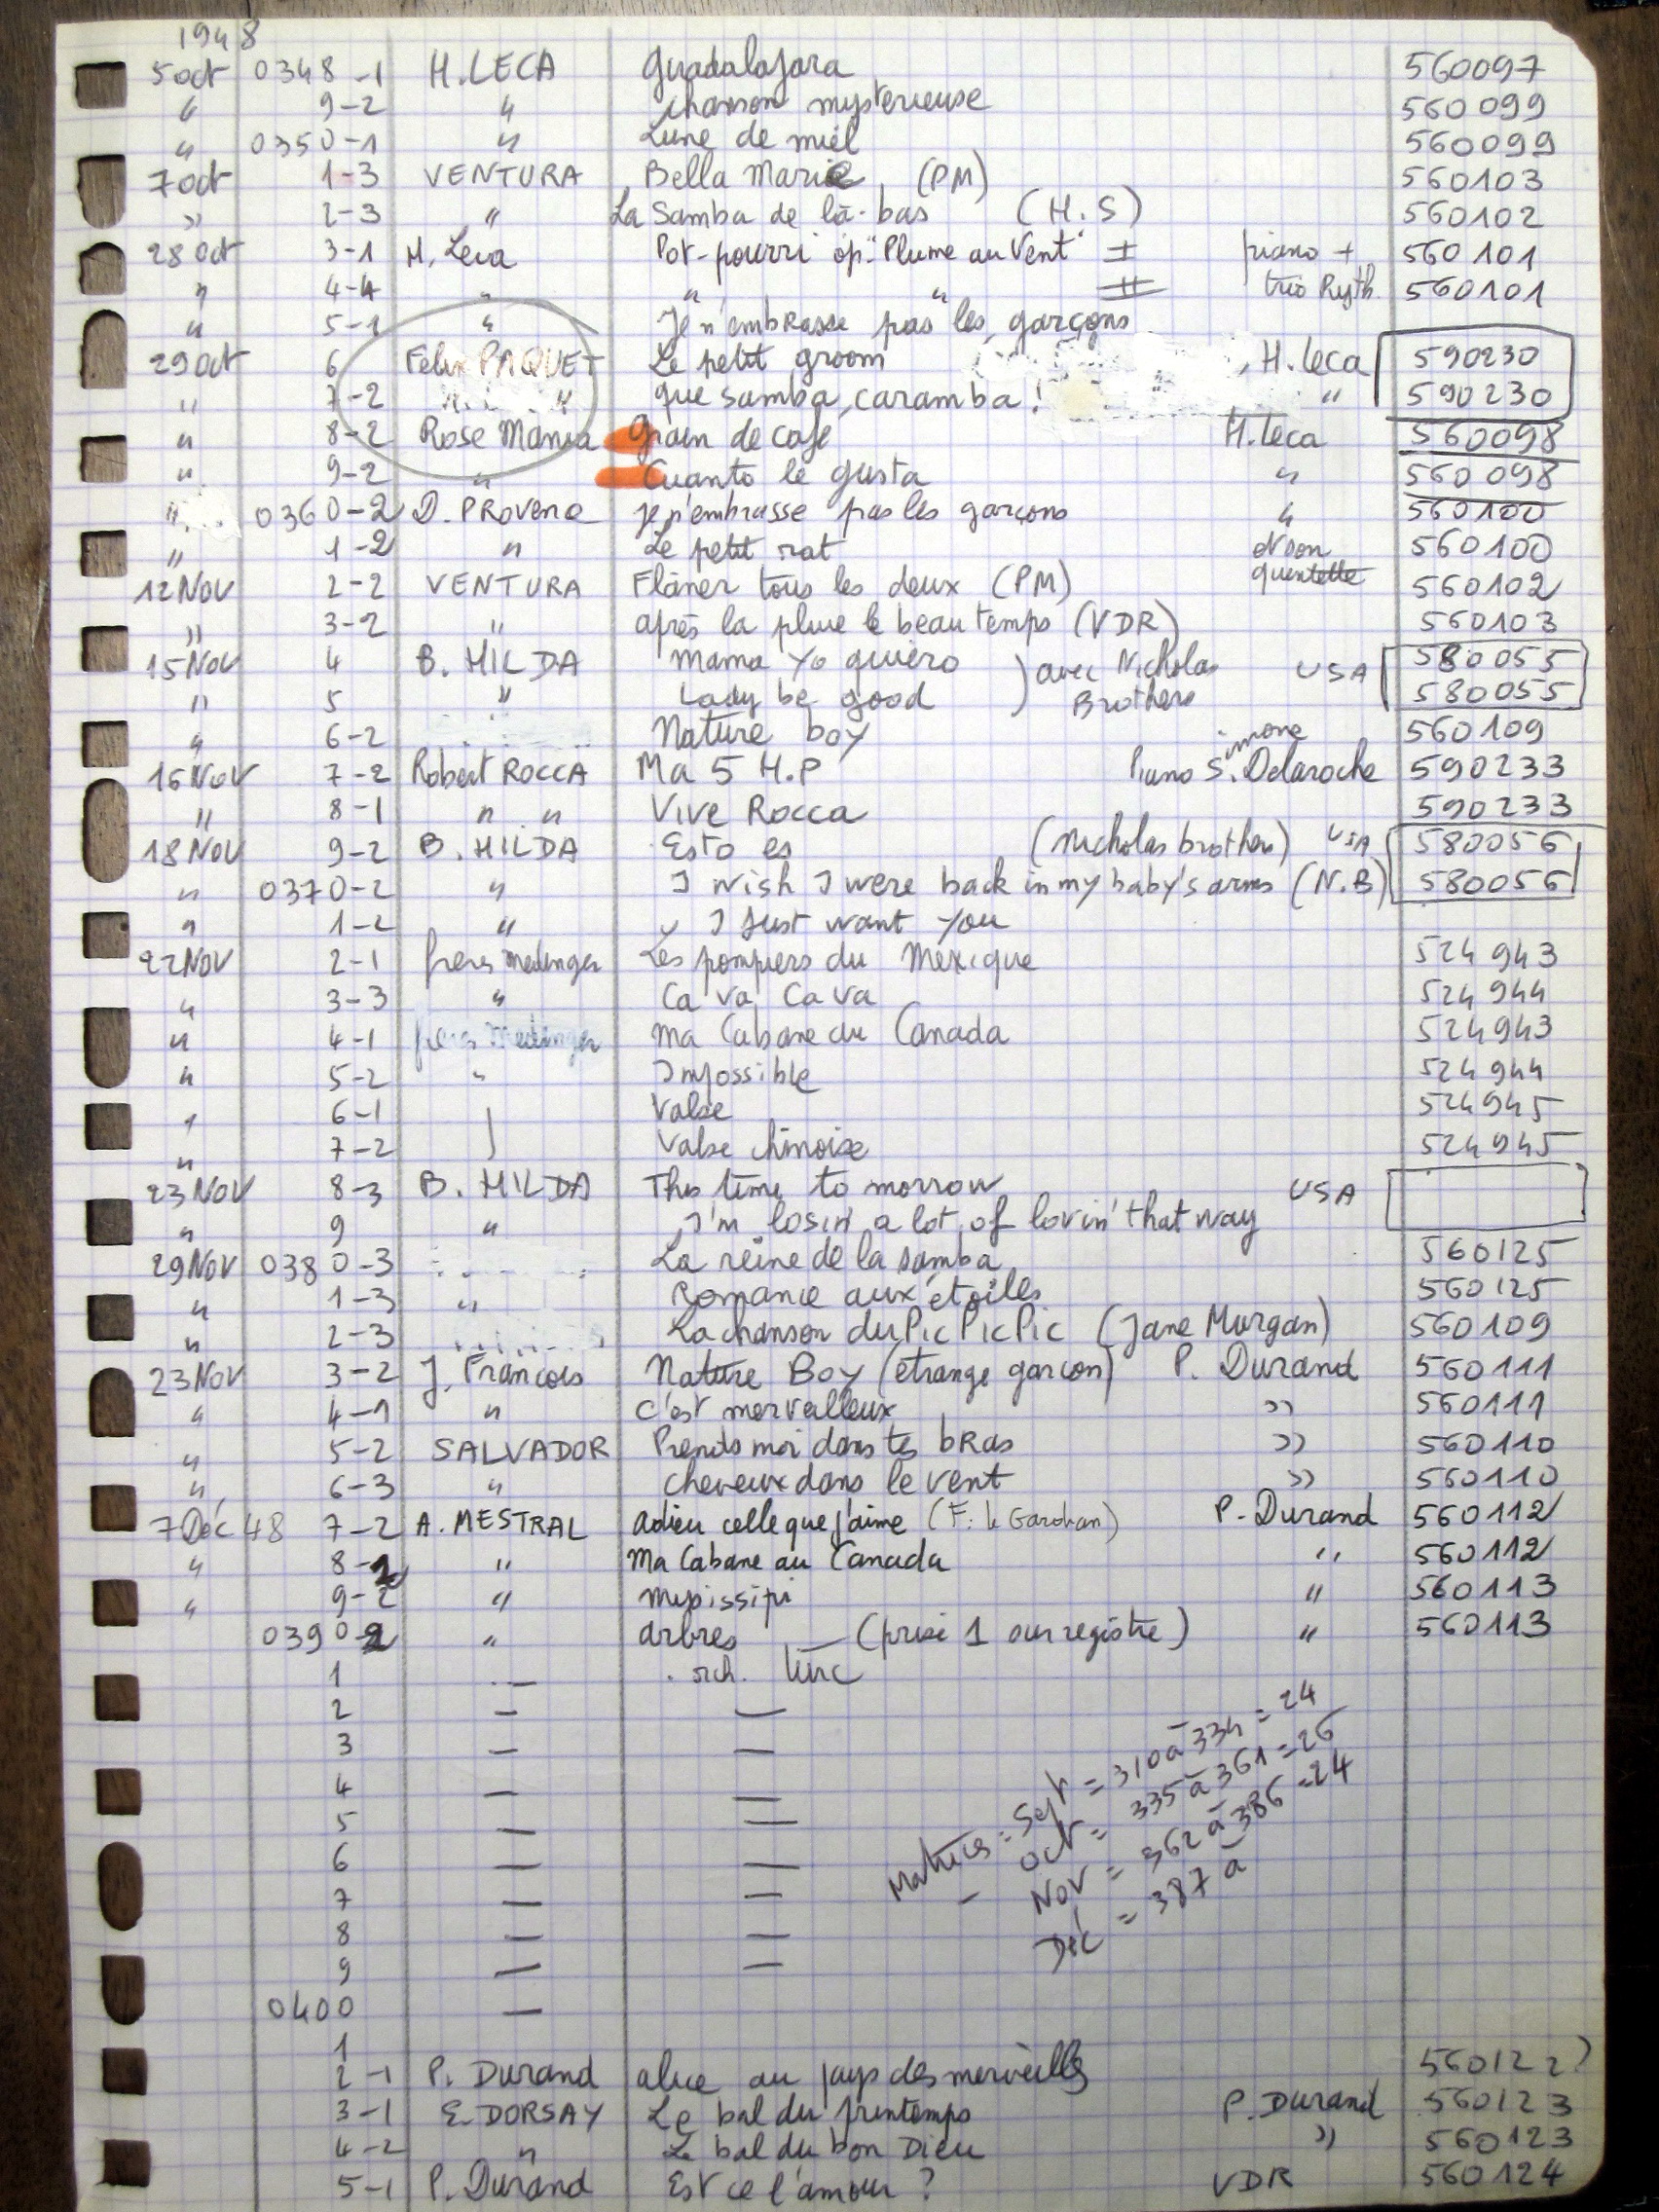 1948
5 oct 0348-1 H. LECA Guadalajara 560097
" 9-2 " chanson mysterieuse 560099
" 0350-1 " Lune de miel 560099
7 oct 1-3 VENTURA Bella Marie (PM) 560103
" 2-3 " La Samba de là-bas (H.S) 560102
28 Oct 3-1 H. Leca Pot-pourri op. "Plume au Vent" I piano + 560101
" 4-4 " " " II trio Ryth. 560101
" 5-1 " Je n'embrasse pas les garçons
29 Oct 6 Felix PAQUET Le petit groom , H. Leca 590230
" 7-2 " que samba, caramba! " 590230
" 8-2 Rose Mania Grain de café H. Leca 560098
" 9-2 " Cuanto le gusta " 560098
" 0360-2 D. PROvence je n'embrasse pas les garçons " 560100
" 1-2 " Le petit rat et son 560100
12 NOV 2-2 VENTURA Flâner tous les deux (PM) quintette 560102
" 3-2 " après la pluie le beau temps (VDR) 560103
15 NOV 4 B. HILDA Mama yo quiero ) avec Nicholas USA 580055
" 5 " Lady be good ) Brothers 580055
" 6-2 Nature boy 560109
16 NOV 7-2 Robert ROCCA Ma 5 H.P Piano Simone Delaroche 590233
" 8-1 " " Vive Rocca 590233
18 NOV 9-2 B. HILDA Esto es (Nicholas brothers) USA 580056
" 0370-2 " I wish I were back in my baby's arms (N.B) 580056
" 1-2 " I Just want you
22 NOV 2-1 freres Medinger Les pompiers du Mexique 524943
" 3-3 " Ca va, Ca va 524944
" 4-1 freres Medinger Ma Cabane au Canada 524943
" 5-2 " Impossible 524944
" 6-1 Valse 524945
" 7-2 Valse chinoise 524945
23 NOV 8-3 B. HILDA This time to morrow USA
" 9 " I'm losin' a lot of lovin' that way
29 NOV 0380-3 La reine de la samba 560125
" 1-3 " Romance aux étoiles 560125
" 2-3 La chanson du Pic Pic Pic (Jane Morgan) 560109
23 NOV 3-2 J. Francois Nature Boy (étrange garcon) P. Durand 560111
" 4-1 " C'est merveilleux " 560111
" 5-2 SALVADOR Prends moi dans tes bras " 560110
" 6-3 " cheveux dans le vent " 560110
7 Déc 48 7-2 A. MESTRAL adieu celle que j'aime P. Durand 560112
" 8-2 " Ma Cabane au Canada " 560112
" 9-2 " Missis​sipi " 560113
0390-2 " arbres — (prise 1 sur registre) " 560113
1 — . sch.
2 — —
3 — —
4 — —
5 — —
6 — —
7 — —
8 — —
9 — —
0400 —
Matrices = Sept = 310 à 334 = 24
— Oct = 335 à 361 = 26
Nov = 362 à 386 = 24
Déc = 387 à
1
2-1 P. Durand alice au pays des merveilles 560122?
3-1 E. DORSAY Le bal du printemps P. Durand 560123
4-2 " Le bal du bon Dieu " 560123
5-1 P. Durand Est ce l'amour ? VDR 560124